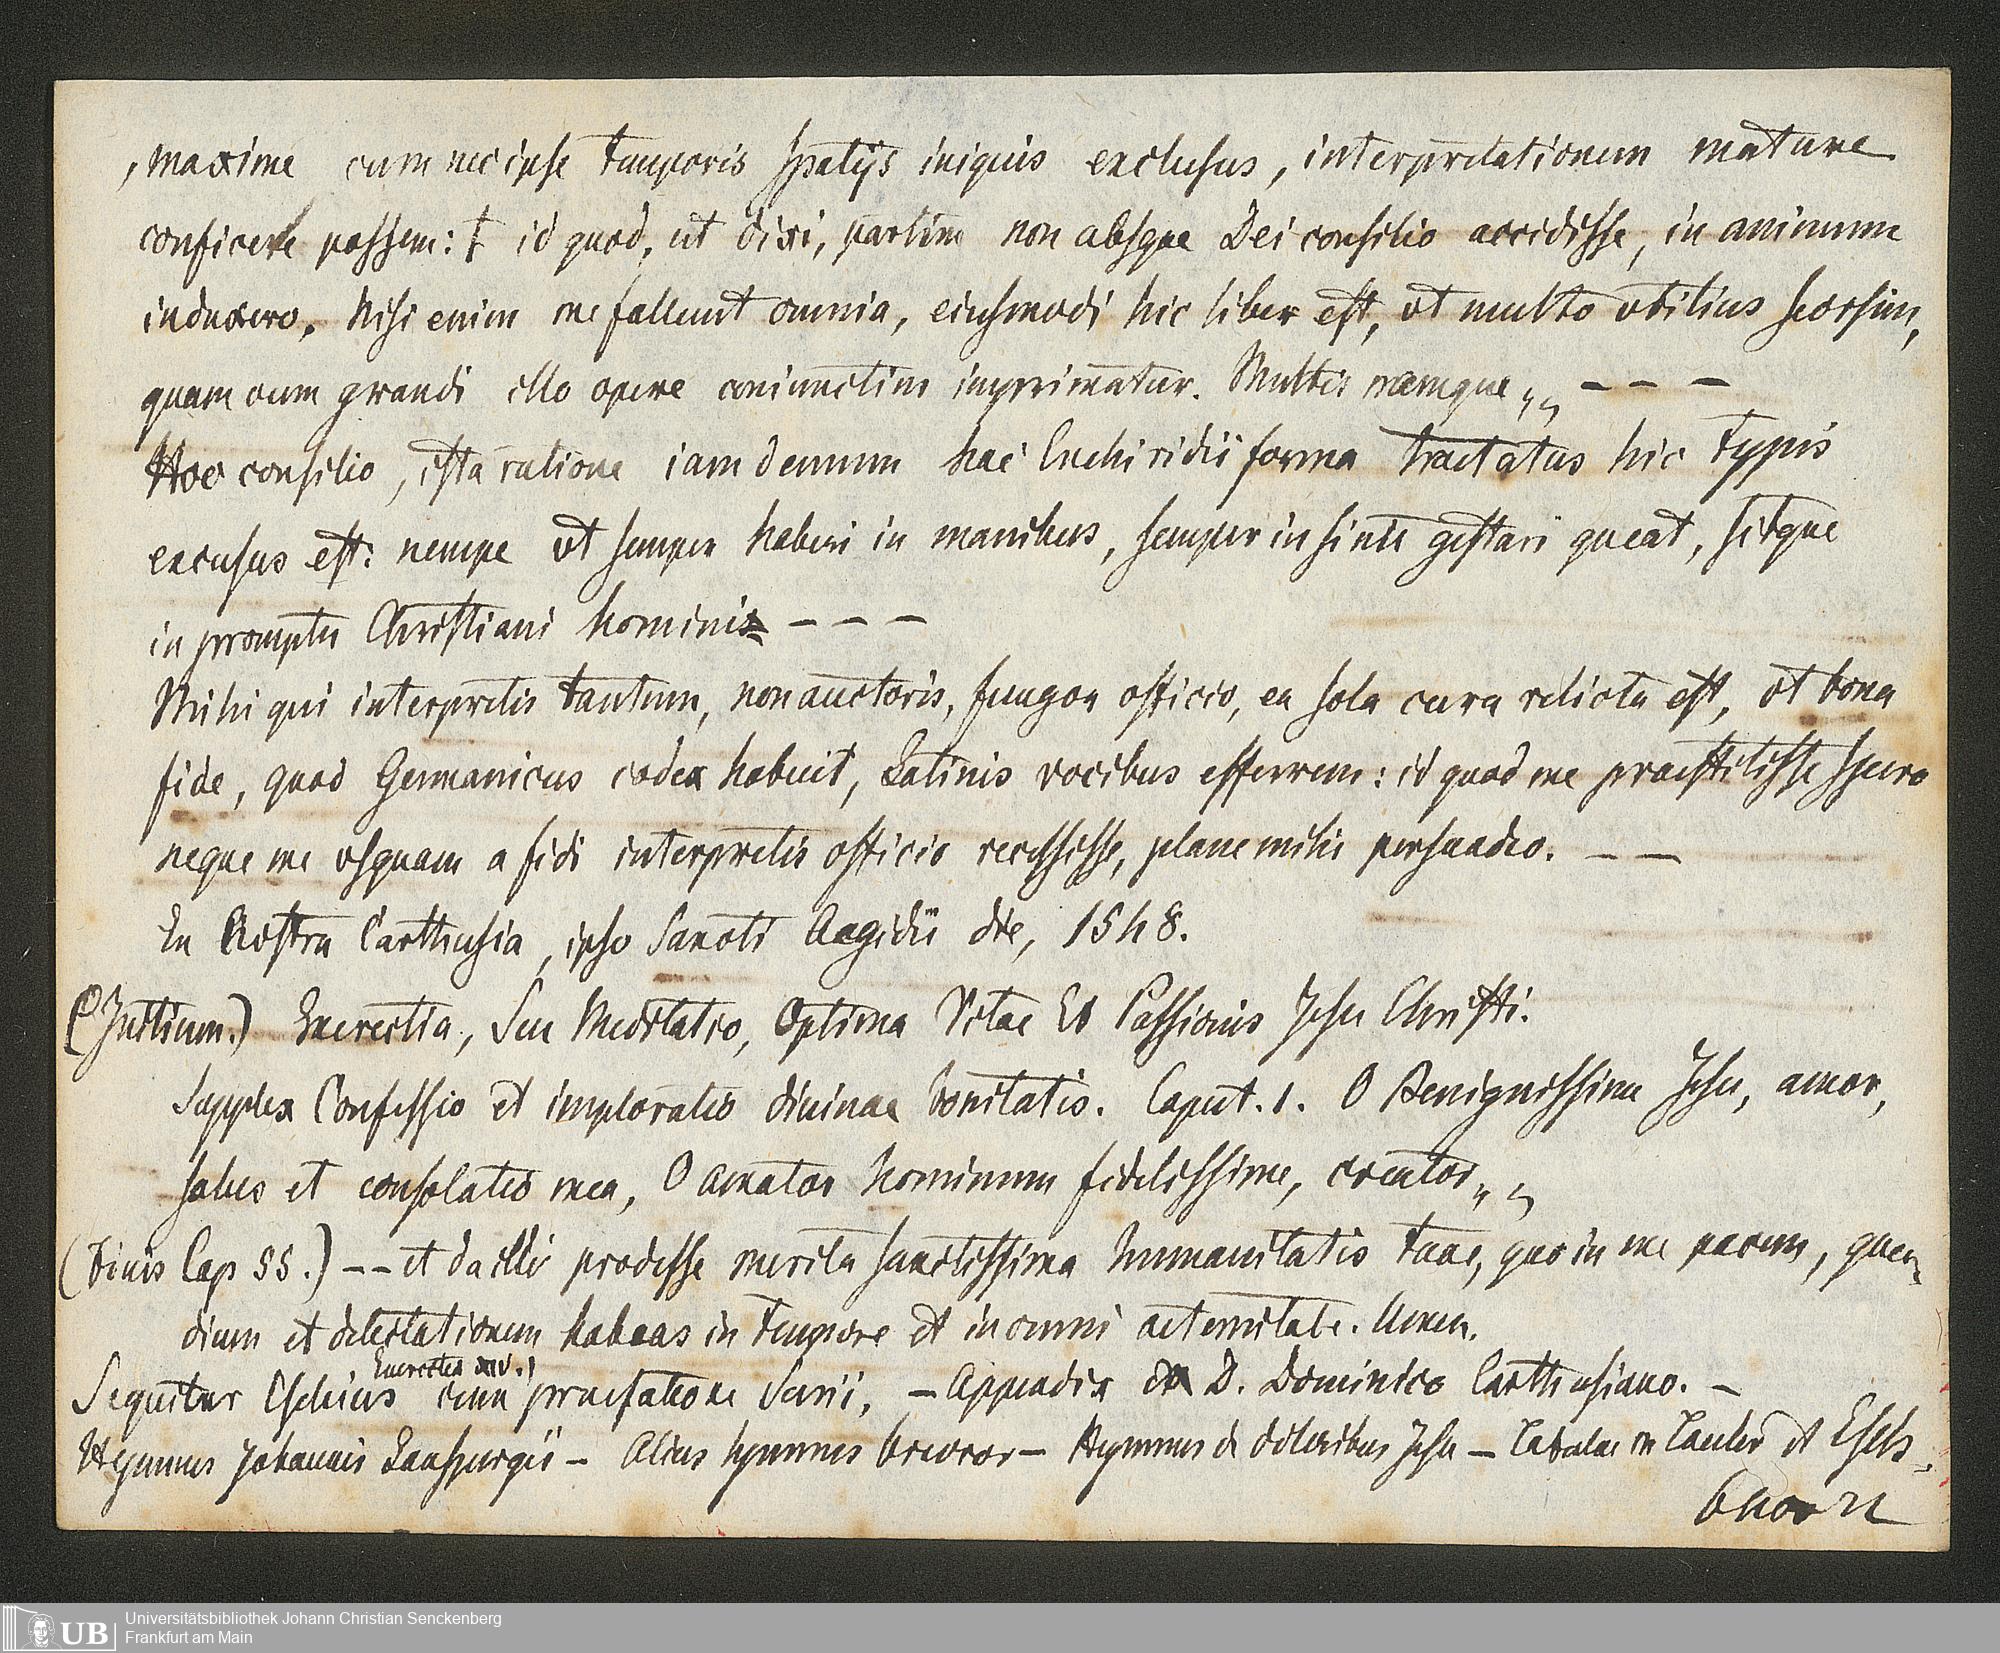 , maxime cum nec ipse temporis spatijs iniquis exclusus, interpretationem mature
conficere possem: id quod, ut dixi, partim non absque Dei consilio accidisse, in animum
induxero. Nisi enim me fallunt omnia, eiusmodi hic liber est, vt multo vtilius seorsim,
quam cum grandi illo opere coniunctim imprimatur. Multis namque „„ – – –
Hoc consilio, ista ratione iam demum hac Enchiridii forma tractatus hic Typis
excusus est: nempe vt semper haberi in manibus, semper in sinu gestari queat, sitque
in promptu Christiani hominis – – –
Mihi qui interpretis tantum, non auctoris, fungor officio, ea sola cura relicta est, vt bona
fide, quod Germanicus codex habuit, Latinis vocibus efferrem: id quod me praestitisse spero
neque me vsquam a fidi interpretis officio recessisse, plane mihi persuadeo. – –
Ex Nostra Carthusia, ipso Sancti Aegidii die, 1548.
(Initium.) Exercitia, Seu Meditatio, Optima Vitae Et Passionis Jesu Christi.
Supplex Confessio et imploratio diuinae bonitatis. Caput. 1. O Benignissime Jesu, amor,
salus et consolatio mea, O amator hominum fidelissime, creator „ „
(Finis Cap 55.) – – et da illi prodesse merita sanctissima humanitatis tuae, quo in me pacem, gau-
dium et delectationem habeas in tempore et in omni aeternitate. Amen.
Exercitia XIV.)
Sequitur Eschius cum praefatione Surii, – Appendix D. Dominico Carthusiano. –
Hymnus Johannis Lanspurgii – Alius hymnus brevior – Hymnus de doloribus Jesu – Tabulae in Tauler et Esch.
Universitätsbibliothek Johann Christian Senckenberg
Frankfurt am Main
UB